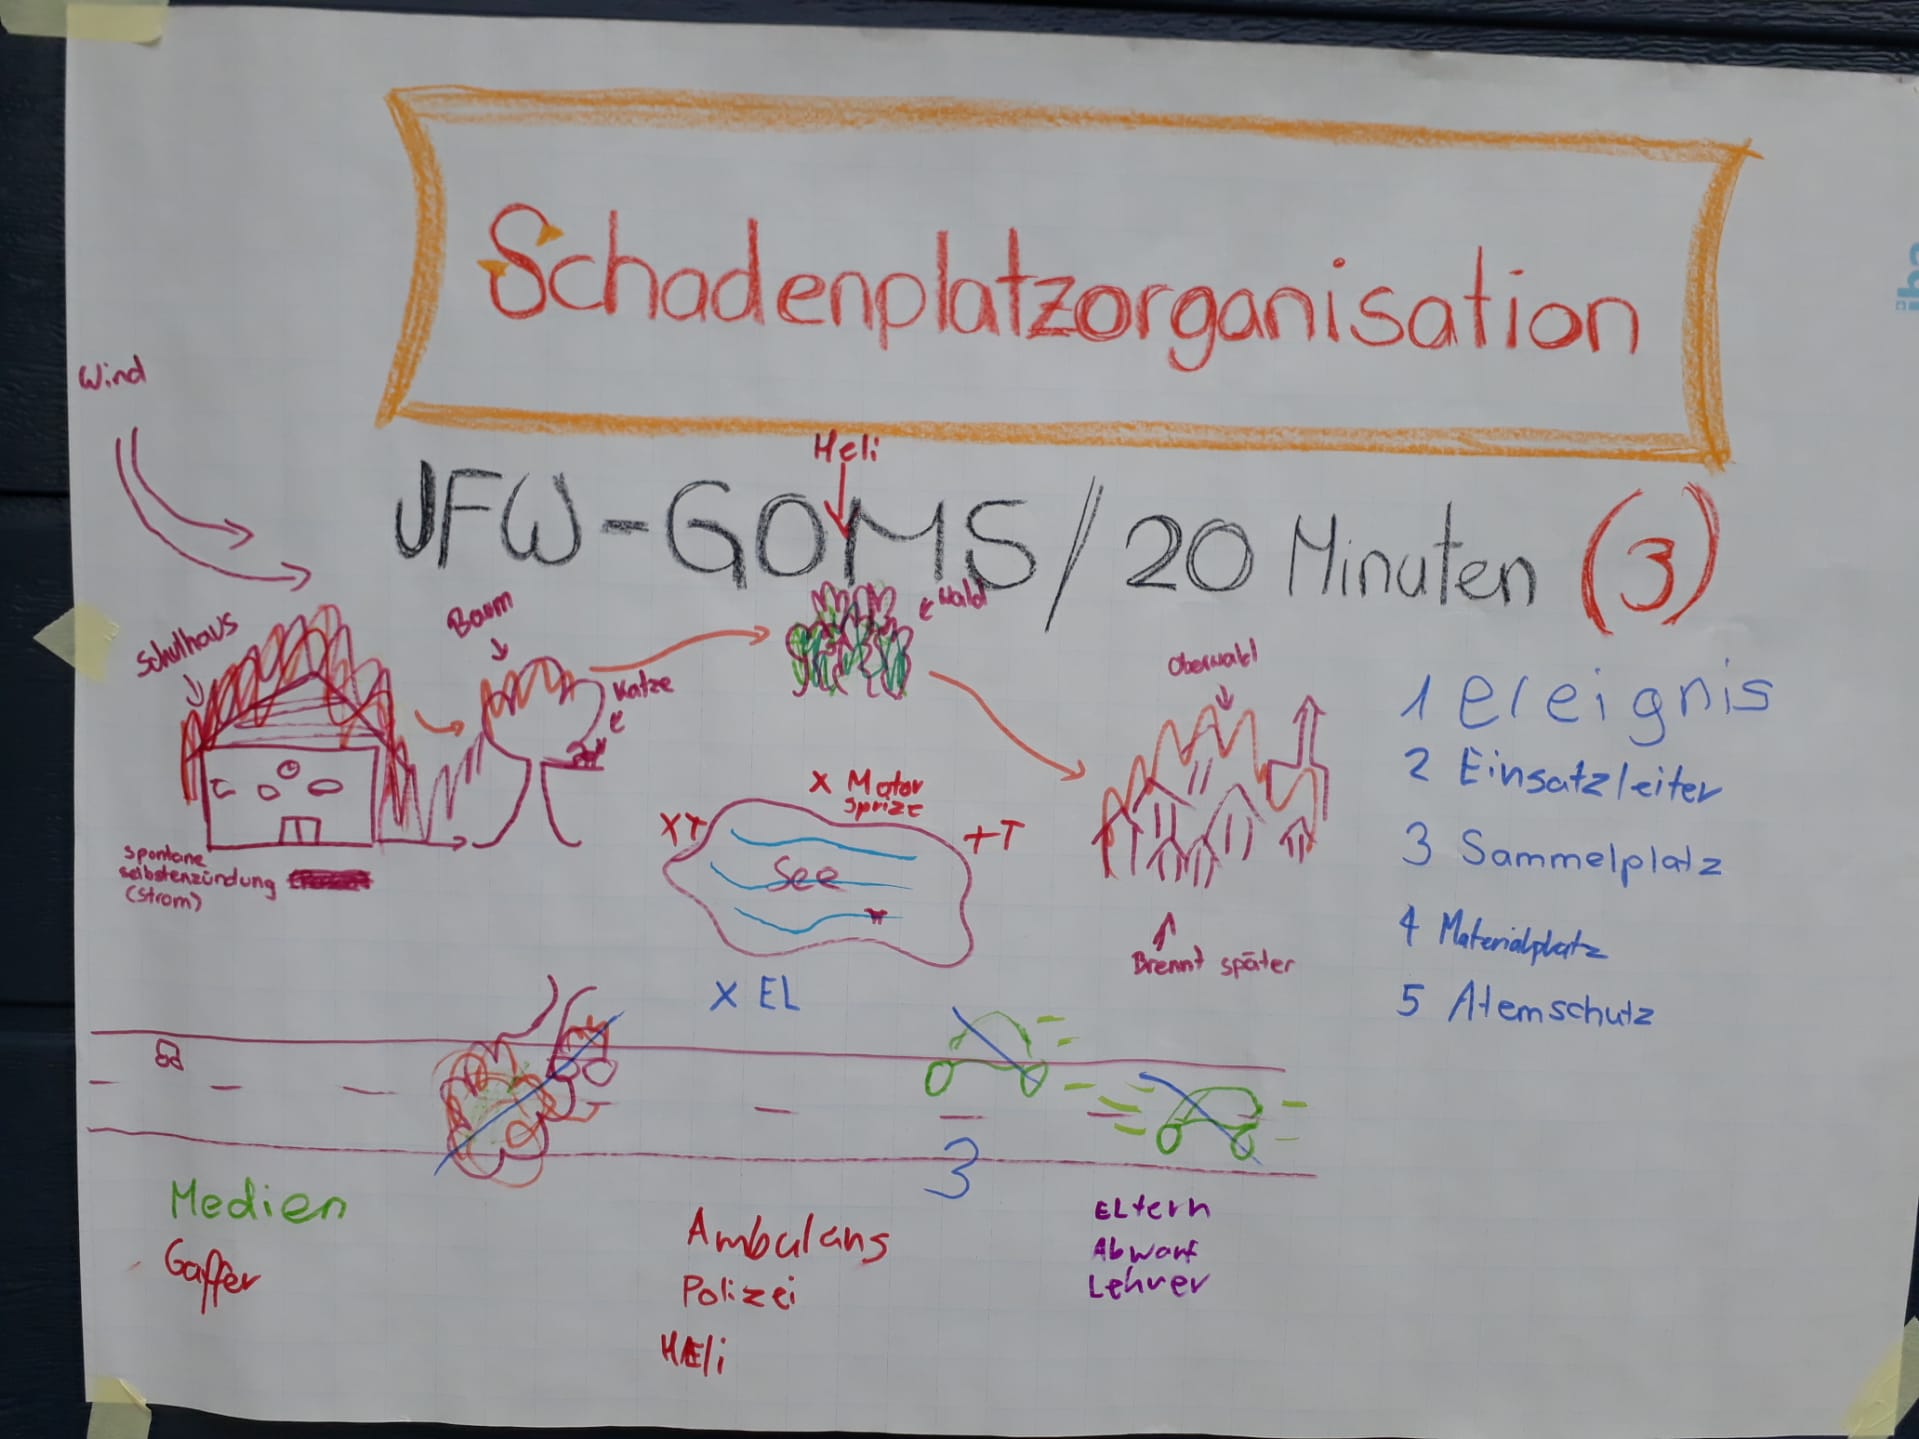 Schadenplatzorganisation
Wind
Heli
JFW-GOMS/20 Minuten (3)
Schulhaus
Baum
Wald
Katze
Oberwald
1 Ereignis
2 Einsatzleiter
3 Sammelplatz
4 Materialplatz
5 Atemschutz
X Motor
sprize
XT
+T
See
spontane
selbstenzündung
(Strom)
Brennt später
X EL
3
Medien
Gaffer
Ambulans
Polizei
HELi
ELtern
Abwart
Lehrer